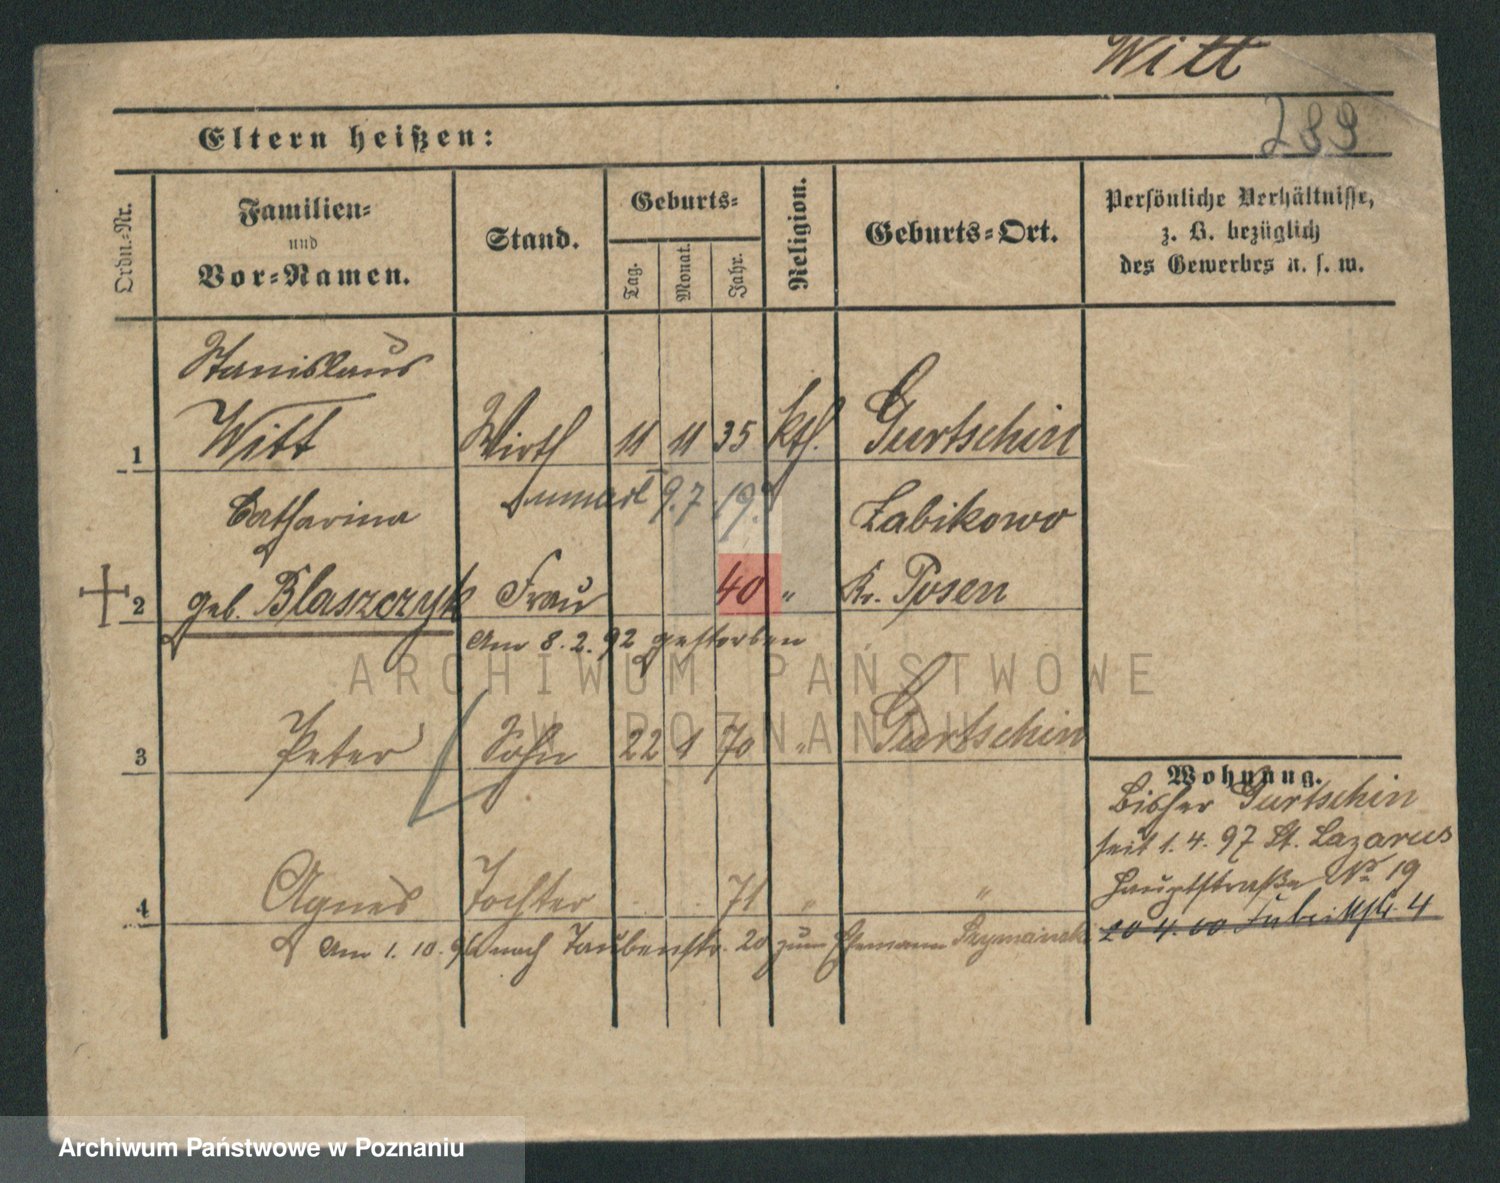 Witt
289
Eltern heißen:
Ordn.-Nr.
Familien-
und
Vor-Namen.
Stand.
Geburts-
Tag.
Monat.
Jahr.
Religion.
Geburts-Ort.
Persönliche Verhältnisse,
z. B. bezüglich
des Gewerbes u. s. w.
Stanislaus
1 Witt Wirth 11 11 35 kth. Gurtschin
9.7.19
Catharina Zabikowo
2 geb. Blaszczyk Frau 40 " Kr. Posen
Am 8.2.92 gestorben
3 Peter Sohn 22 1 70 " Gurtschin
4 Agnes Tochter 71 " "
Am 1.10.96 nach Taubenstr. 20 zum Ehemann
Wohnung.
Bisher Gurtschin
seit 1.4.97 St. Lazarus
Hauptstraße No 19
20 4. 00
ARCHIWUM PAŃSTWOWE
W POZNANIU
Archiwum Państwowe w Poznaniu